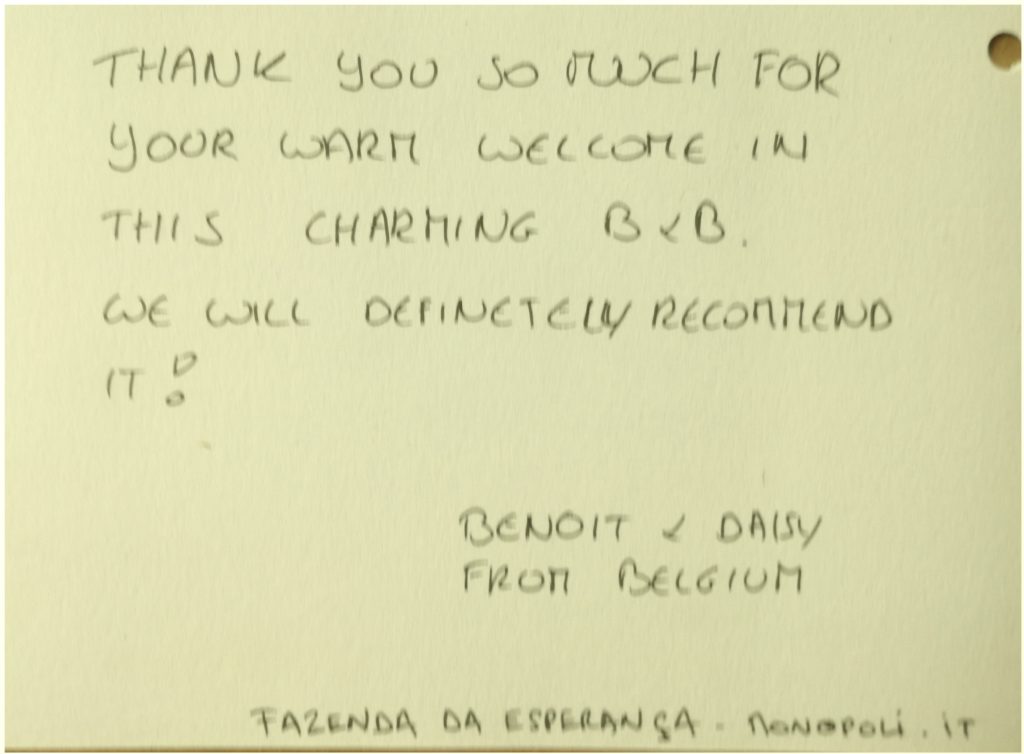 THANK YOU SO MUCH FOR
YOUR WARM WELCOME IN
THIS CHARMING B & B.
WE WILL DEFINETELY RECOMMEND
IT !
BENOIT & DAISY
FROM BELGIUM
FAZENDA DA ESPERANÇA - MONOPOLI . IT